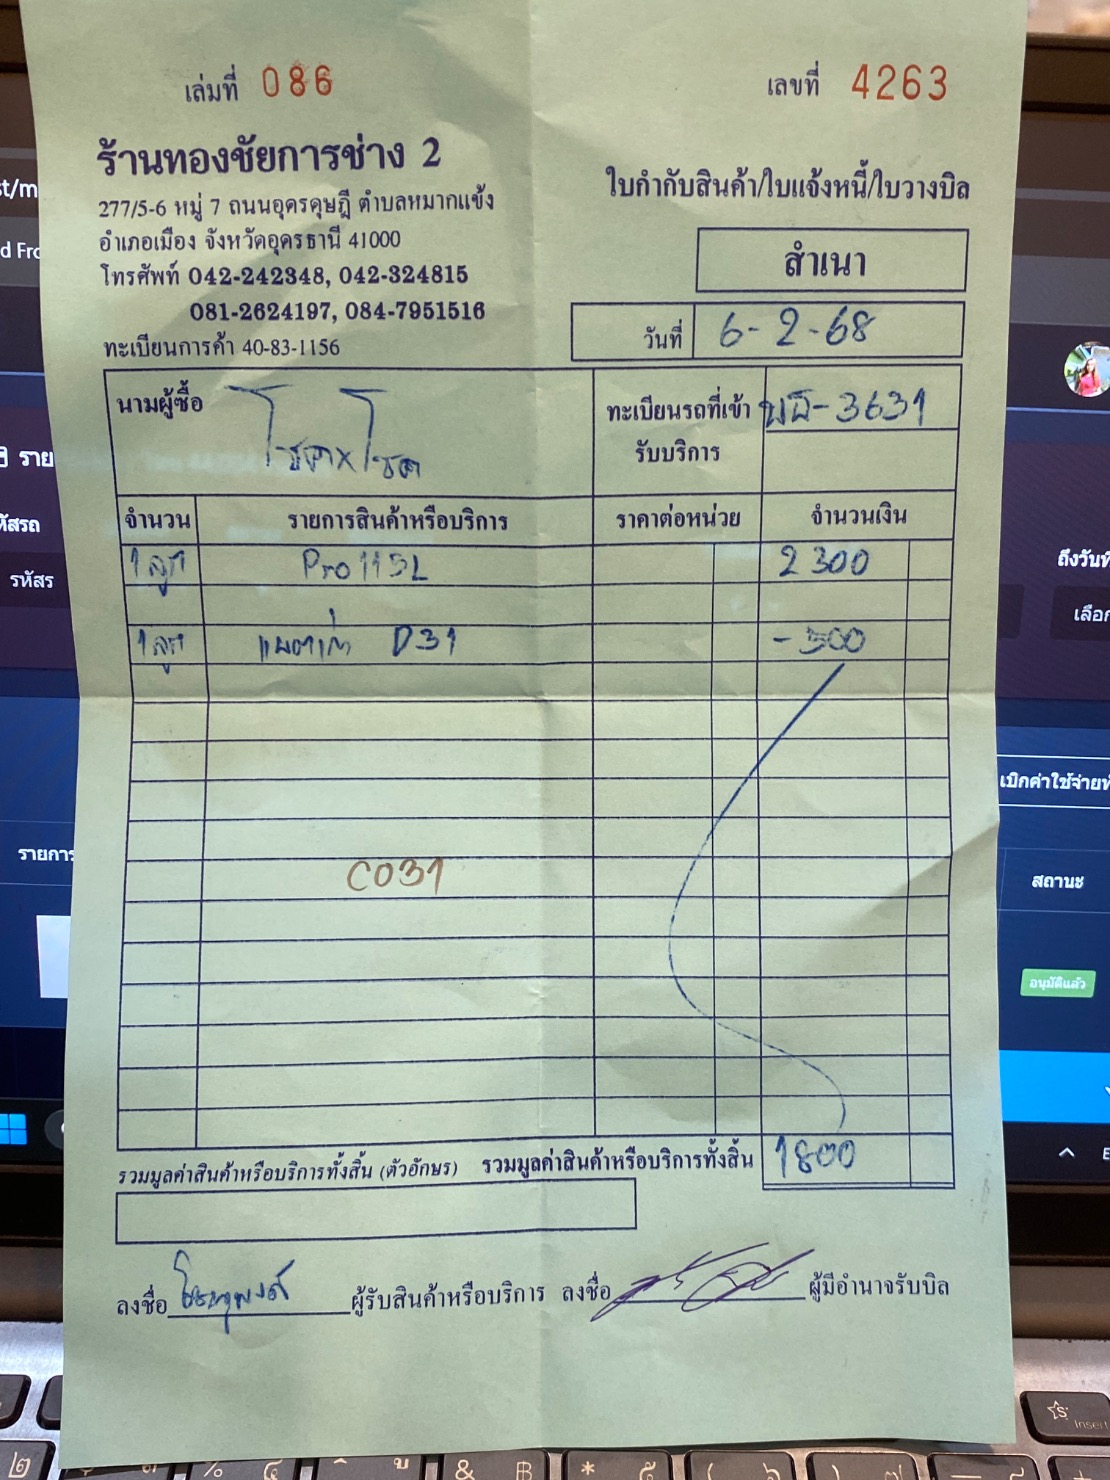 เล่มที่ 086
เลขที่ 4263
ร้านทองชัยการช่าง 2
277/5-6 หมู่ 7 ถนนอุดรดุษฎี ตำบลหมากแข้ง
อำเภอเมือง จังหวัดอุดรธานี 41000
โทรศัพท์ 042-242348, 042-324815
081-2624197, 084-7951516
ทะเบียนการค้า 40-83-1156
ใบกำกับสินค้า/ใบแจ้งหนี้/ใบวางบิล
สำเนา
วันที่ 6-2-68
นามผู้ซื้อ โชคxโชค
ทะเบียนรถที่เข้า
รับบริการ
-3631
จำนวน รายการสินค้าหรือบริการ ราคาต่อหน่วย จำนวนเงิน
1 ลูก Pro115L 2300
1 ลูก แบตเก่า D31 -500
C031
รวมมูลค่าสินค้าหรือบริการทั้งสิ้น (ตัวอักษร) รวมมูลค่าสินค้าหรือบริการทั้งสิ้น 1800
ลงชื่อ ผู้รับสินค้าหรือบริการ ลงชื่อ ผู้มีอำนาจรับบิล
st/m
d Fro
ราย
รหัสร
ถึงวันที่
เลือก
เบิกค่าใช้จ่าย
รายการ
สถานะ
อนุมัติแล้ว
Insert